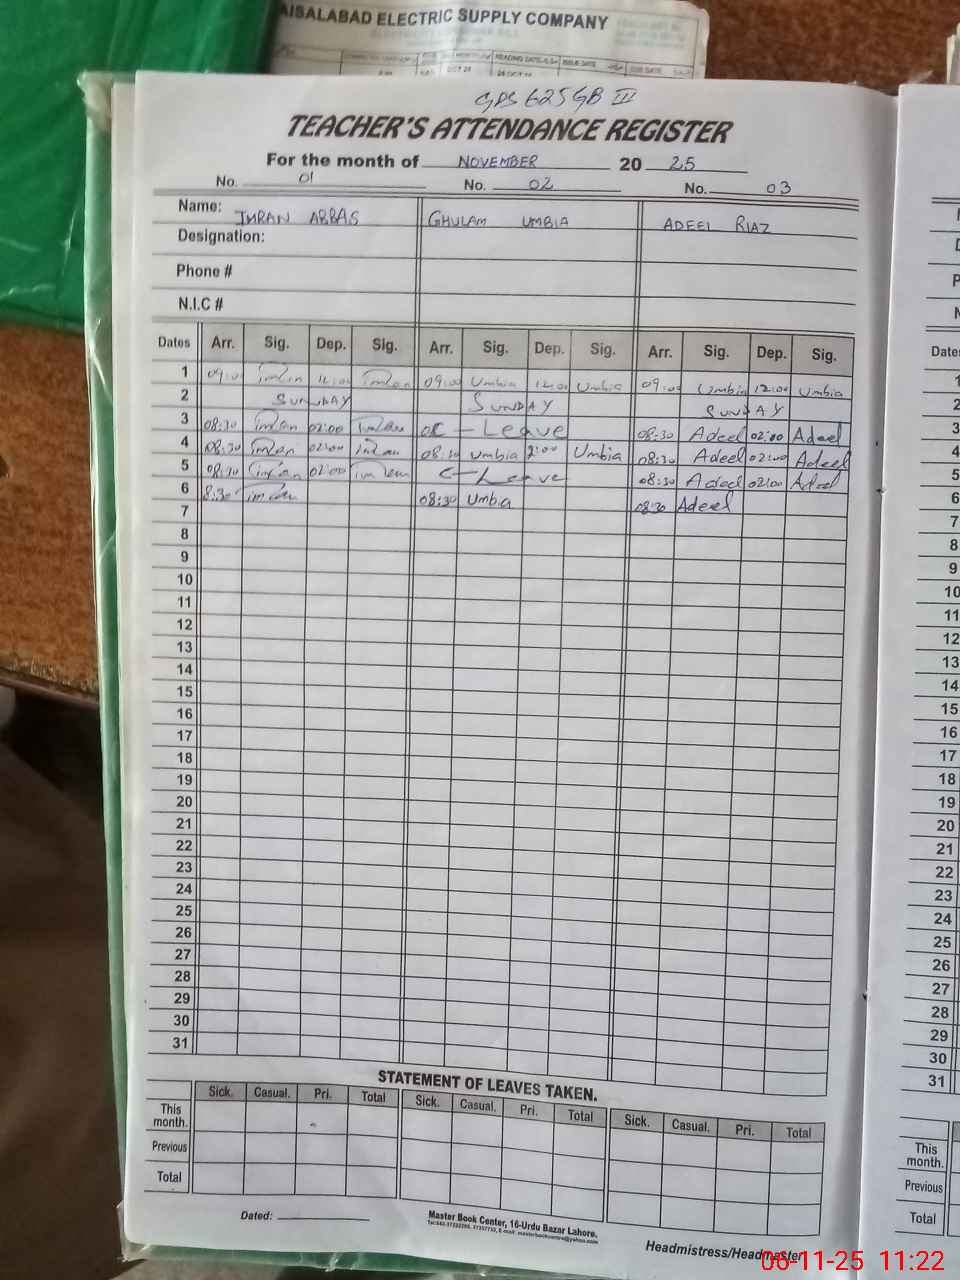 AISALABAD ELECTRIC SUPPLY COMPANY
READING DATE ISSUE DATE DUE DATE
OCT 25
GPS 625 GB III
TEACHER'S ATTENDANCE REGISTER
For the month of NOVEMBER 20 25
No. 01 No. 02 No. 03
Name: IMRAN ABBAS GHULAM UMBIA ADEEL RIAZ
Designation:
Phone #
N.I.C #
Dates Arr. Sig. Dep. Sig. Arr. Sig. Dep. Sig. Arr. Sig. Dep. Sig.
1 09:00 imran 12:00 imran 09:00 Umbia 12:00 Umbia 09:00 Umbia 12:00 Umbia
2 SUNDAY SUNDAY SUNDAY
3 08:30 imran 02:00 imran C - Leave 08:30 Adeel 02:00 Adeel
4 08:30 imran 02:00 imran 08:30 Umbia 2:00 Umbia 08:30 Adeel 02:00 Adeel
5 08:30 imran 02:00 imran C - Leave 08:30 Adeel 02:00 Adeel
6 8:30 imran 08:30 Umbia 08:30 Adeel
7
8
9
10
11
12
13
14
15
16
17
18
19
20
21
22
23
24
25
26
27
28
29
30
31
STATEMENT OF LEAVES TAKEN.
Sick. Casual. Pri. Total Sick. Casual. Pri. Total Sick. Casual. Pri. Total
This month.
Previous
Total
Dated:
Master Book Center, 16-Urdu Bazar Lahore.
Headmistress/Headmaster
Dates
1
2
3
4
5
6
7
8
9
10
11
12
13
14
15
16
17
18
19
20
21
22
23
24
25
26
27
28
29
30
31
This month.
Previous
Total
06-11-25 11:22